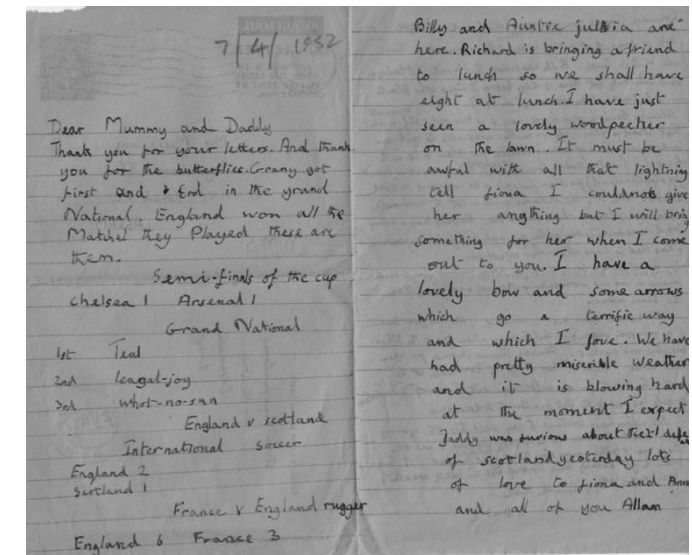 7/4/1952
Dear Mummy and Daddy
Thank you for your letters. And thank
you for the butterflies. Grany got
first and 2nd in the grand
National. England won all the
Matches they Played these are
them.
Semi-finals of the cup
Chelsea 1 Arsenal 1
Grand National
1st Teal
2nd leagal-joy
3rd whot-no-sun
England v scotland
International soccer
England 2
Scotland 1
France v England rugger
England 6 France 3
Billy and Auntie julia are
here. Richard is bringing a friend
to lunch so we shall have
eight at lunch. I have just
seen a lovely woodpecker
on the lawn. It must be
awful with all that lightning
tell fiona I couldnot give
her anything but I will bring
something for her when I come
out to you. I have a
lovely bow and some arrows
which go a terrific way
and which I love. We have
had pretty miserible weather
and it is blowing hard
at the moment I expect
Daddy was furious about the
of scotland yesterday lots
of love to fiona and
and all of you Allan